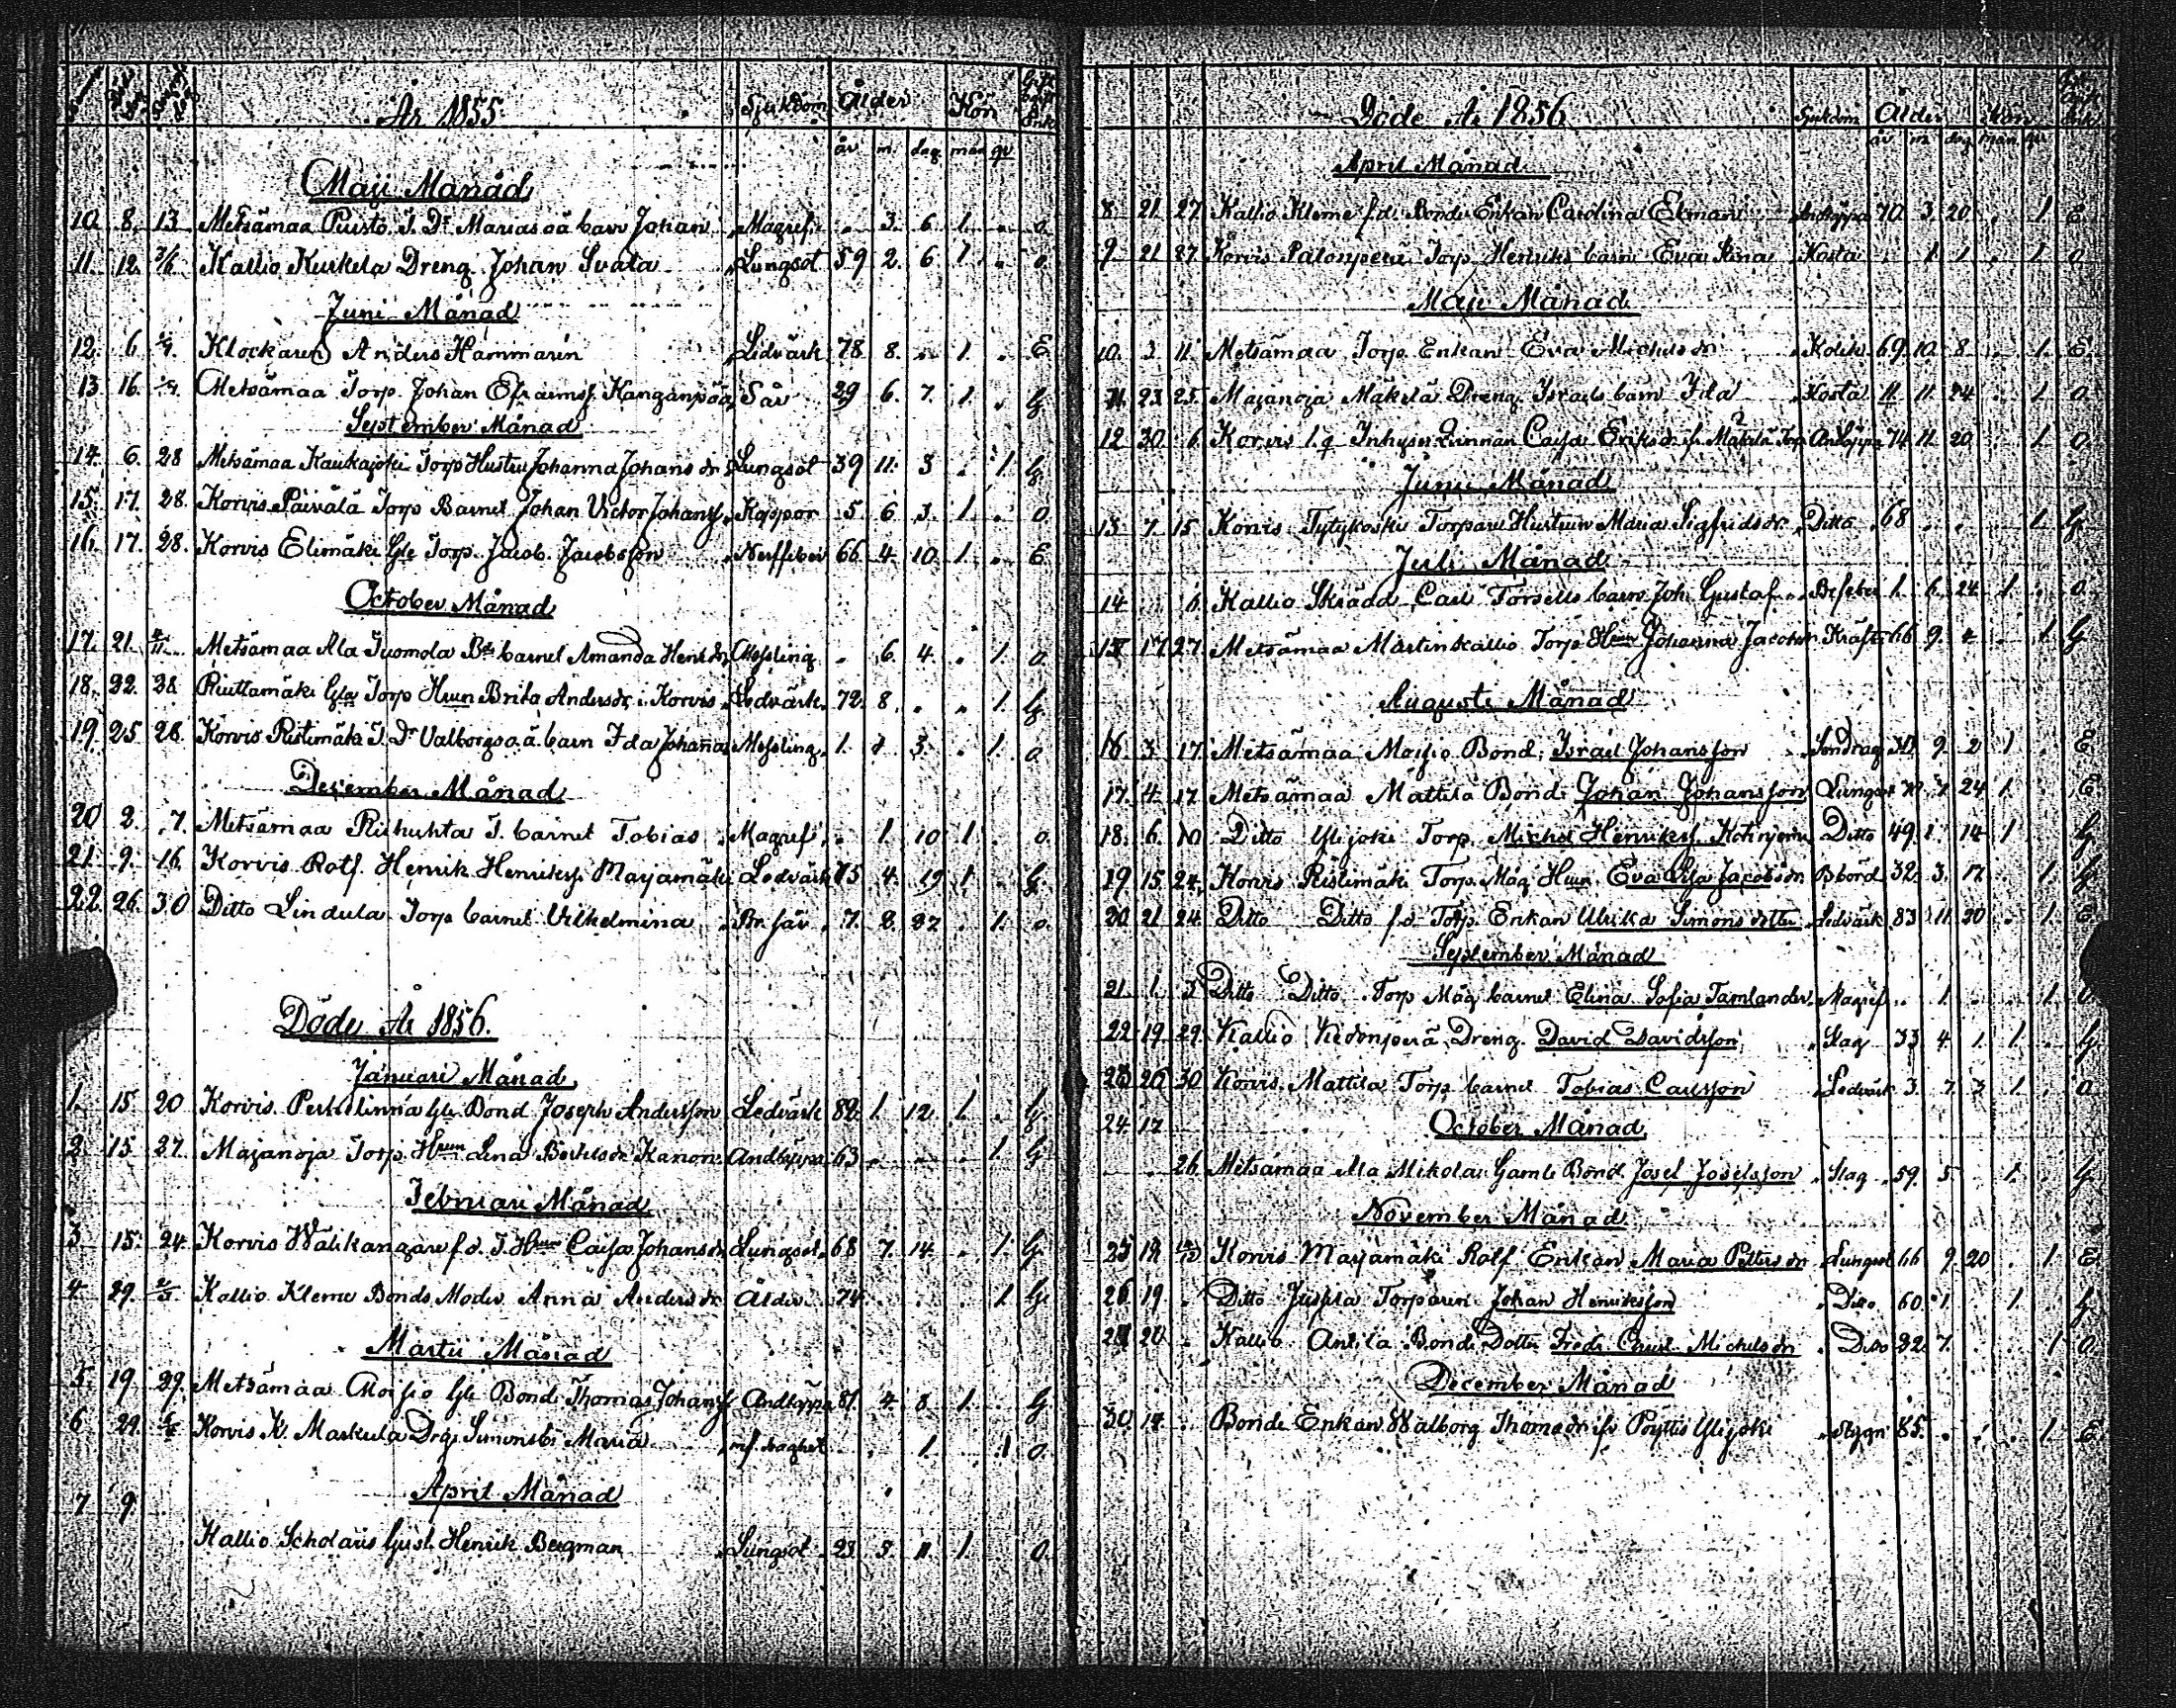 År 1855 Sjukdom Ålder Kön
år m. dag man qv
Maii Månad
10. 8. 13 Metsämaa Puisto I. Dr Marias oä barn Johan Magref. 3. 6. 1. o.
11. 12. 3/6 Kallio Kurkela Dreng Johan Svala Lungsot 59 2. 6. 1. o
Juni Månad
12. 6 Klockaren Anders Hammarén Ledvärk 78 8. 1. E
13 16. Metsämaa Torp. Johan Efraimsf. Kanganpää Sår 29 6. 7. 1. G
September Månad
14. 6. 28 Metsämaa Kaukajoki Torp Hustru Johanna Johans dr Lungsot 39 11. 3 1. G.
15. 17. 28. Korvis Päivälä Torp Barnet Johan Victor Johansf. Koppor 5. 6 3. 1. O
16. 17. 28. Korvis Elimäki Gle Torp. Jacob Jacobsson Nerffeber 66 4. 10. 1. E
October Månad
17. 21. Metsämaa Ala Tuomola Bde barnet Amanda Henr dr Messling 6. 4. 1. o.
18. 22. 28 Riuttamäki Gla Torp Hun Brita Andersdr i Korvis Ledvärk. 72. 8. 1. G
19. 25 28. Korvis Ristimäki I. Dr Valborgs o.ä. barn Ida Johanna Messling. 1. 3. 1. o
December Månad
20 2. 7. Metsämaa Riihuhta I. barnet Tobias Magref. 1. 10 1. o
21. 9. 16. Korvis Rotf. Henrik Henriksf. Maijamäki Ledvärk 75 4. 19 1. G.
22. 26. 30 Ditto Lindula Torp barnet Vilhelmina Br. sär 7. 8. 27 1. o.
Döde År 1856.
Januari Månad
1. 15 20 Korvis Perholinna Gle Bond Joseph Andersson Ledvärk 82. 1. 12. 1. G
2. 15 27. Majanoja Torp. Hun Lena Bertelsdr Kanon Andtäppa 63 1. G
Februari Månad
3 15. 24. Korvis Wälikangare f.d. T. Hun Caisa Johansdr Lungsot 68 7. 14. 1. G.
4 29. Kallio Kleme Bonds Moder Anna Andersdr Ålder 74 1 G.
Martii Månad
5 19 29. Metsämaa Moisio Gle Bond Thomas Johansf. Andtäppa 81. 4. 8 1. G.
6 29. Korvis K. Markula Drg. Simons b. Maria 1. 1 o.
April Månad
7 9.
Kallio Scholaris Gust. Henrik Bergman Lungsot 23. 5 11. 1. O.
Döde År 1856 Sjukdom Ålder Kön
år m dag man qv
April Månad
8 21. 27. Kallio Kleme f.d. Bonde Enkan Carolina Ekman Andtäppa 70 3 20 1. E
9 21 27. Korvis Palonperä Torp. Henriks barn Eva Stina Hosta 1. 1. 1. o.
Maii Månad
10. 3. 11. Metsämaa Torp. Enkan Eva Michelsdr Kolik 69. 10. 8 1. E.
11. 23. 25. Majanoja Mäkelä Dreng Israels barn Ida Hosta 11. 11. 24 1. o.
12 30. 6. Korvis Inhyses Qvinnan Caisa Eriksdr fr. Mäkelä Torp Andtäppa 74 11 20. 1. O
Junii Månad
13 7. 15 Korvis Tytykoski Torpare Hustrun Maria Sigfridsdr Ditto 68 1. G.
Juli Månad
14 6. Kallio Skrädd. Carl Forsells barn Joh. Gustaf 1. 6. 24 1. o.
15 17. 27. Metsämaa Martinkallio Torp. Hun Johanna Jacobsdr Kräfta 66 9. 4 1. G
Augusti Månad
16 3. 17. Metsämaa Moisio Bond. Israel Johansson 9. 2 1 E
17. 4. 17 Metsämaa Mattila Bonde Johan Johansson Lungsot 24 1. E
18. 6. 10 Ditto Ylijoki Torp. Michel Henriksf. Ditto 49 1 14 1 G
19 15. 24. Korvis Ristimäki Torp. Måg Hun. Eva Lisa Jacobsdr Bbörd 32. 3. 17 1. G
20 21 24. Ditto Ditto f.d. Torp. Enkan Ulrika Simons dotter Ledvärk 83 11 20 1. E.
September Månad
21 1. 3 Ditto Ditto Torp Måg barnet Elina Sofia Tamlander Magref. 1. 1. O
22 19. 29. Kallio Kedonperä Dreng David Davidsson Slag 33 4 1. 1. G
23 26 30 Korvis Mattila Torp. barnet Tobias Carlsson Ledvärk 3. 7 3 1. O.
24 17 October Månad
26. Metsämaa Ala Mikola Gamle Bond. Josef Josefsson Slag 59. 5 1. G.
November Månad
25 Korvis Maijamäki Rotf Enkan Maria Petters dr Lungsot 66 9 20 1. E
26 19. Ditto Jussila Torparen Johan Henriksson Ditto 60. 1 1. G
20 Kallio Antila Bonde Dotter Fredr. Christ. Michelsdr Ditto 82. 7. 1 O
December Månad
30. 14. Bonde Enkan Walborg Thomsdr fr. Pöytis Ylijoki Stygn 85. 1. E.